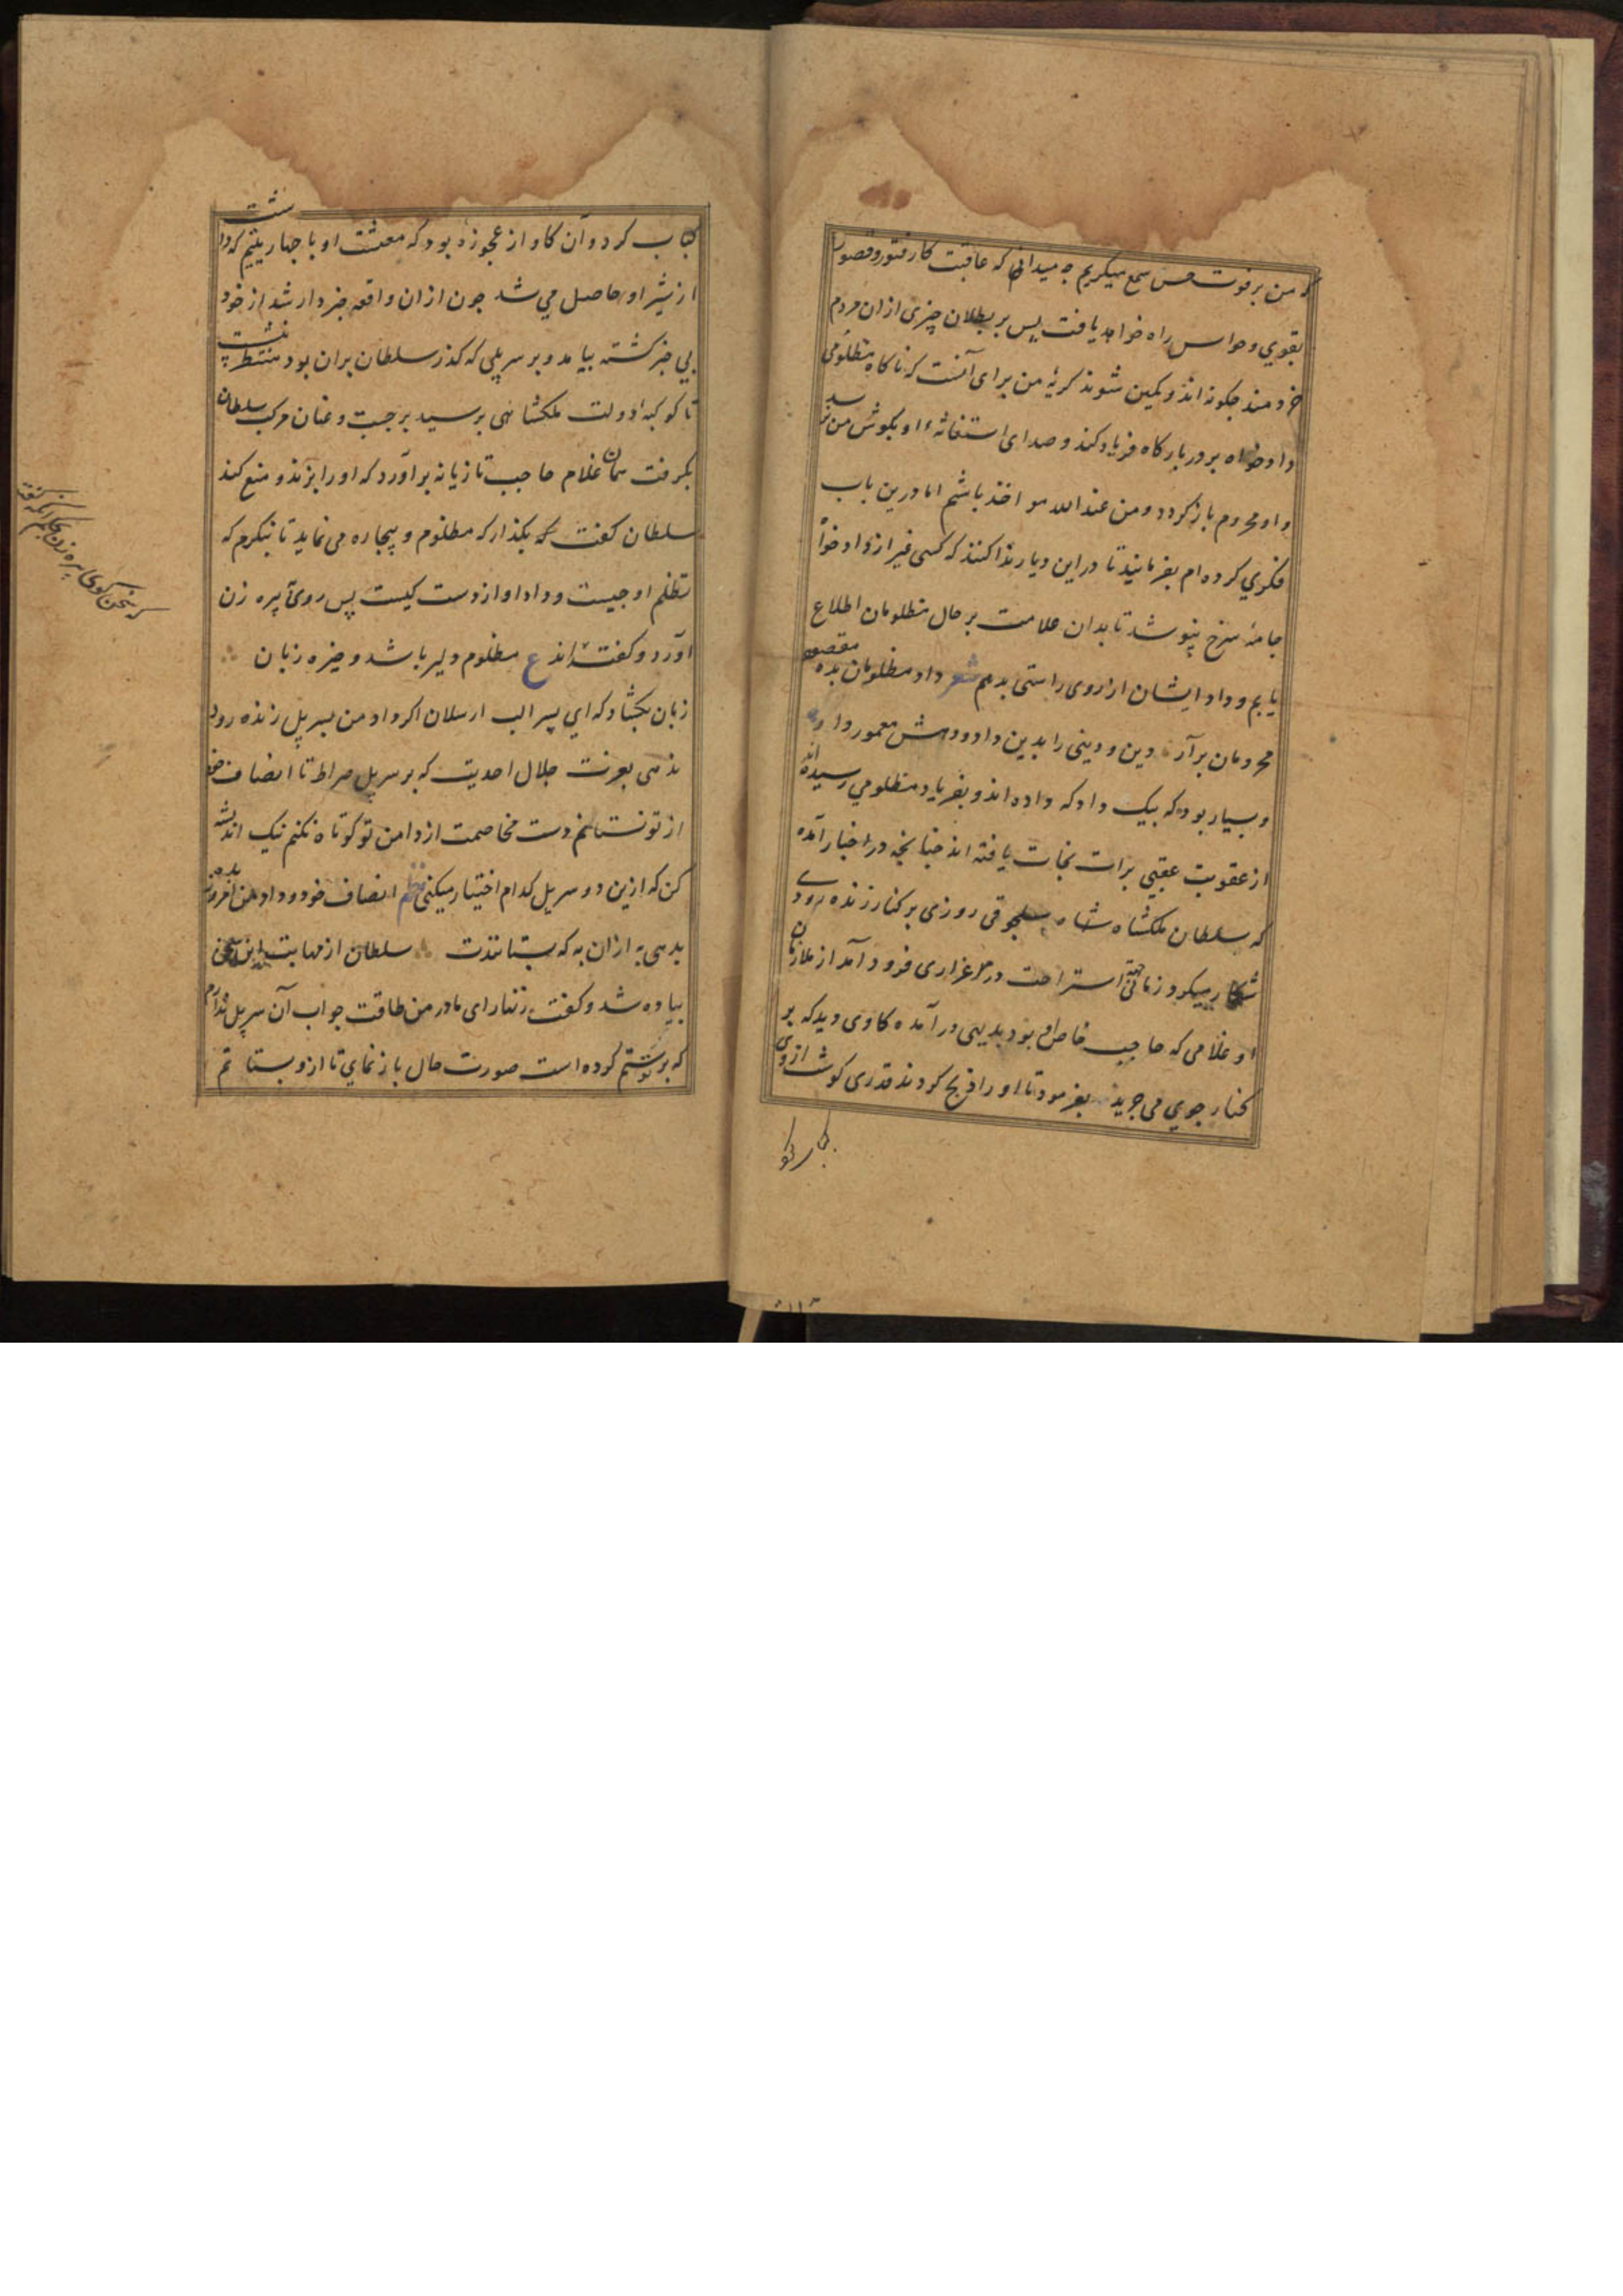 که من بر فوت حس سمع میگریم چه میدانم که عاقبت کار فتور و قصور
بقوی و حواس راه خواهد یافت پس بر بطلان چیزی ازان مردم
خردمند چگونه اندوهگین شوند گریهٔ من برای آنست که ناگاه مظلومی
دادخواه بر در بارگاه فریاد کند و صدای استغاثهٔ او بگوش من نرسد
و او محروم باز گردد و من عند الله مواخذ باشم اما درین باب
فکری کرده ام بفرمایید تا در این دیار ندا کنند که کسی غیر از دادخواه
جامهٔ سرخ نپوشد تا بدان علامت بر حال مظلومان اطلاع
یابم و داد ایشان از روی راستی بدهم شعر داد مظلومان بده مقصود
محرومان برآر دین و دینی را بدین داد و دهش معمور دار
و بسیار بوده که بیک داد که داده اند و بفریاد مظلومی رسیده اند
از عقوبت عقبی برات نجات یافته اند چنانچه در اخبار آمده
که سلطان ملکشاه سلجوقی روزی بر کنار زنده رودی
شکار میکرد زمانی جهة استراحت در مرغزاری فرود آمد از ملازمان
او غلامی که حاجب خاص او بود بدیهی در آمده کاوی دید که بر
کنار جوی می چرید بفرمود تا او را ذبح کردند قدری گوشت ازوی
کباب کرد و
کباب کرد و آن کاو از عجوزه بود که معیشت او با چهار یتیم که داشت
از شیر او حاصل می شد چون ازان واقعه خبردار شد از خود
بی خبر گشته بیامد و بر سر پلی که گذر سلطان بران بود منتظر نشست
تا کوکبهٔ دولت ملکشاهی برسید برجست و عنان مرکب سلطان
بگرفت همان غلام حاجب تازیانه برآورد که او را بزند و منع کند
سلطان گفت که بگذار که مظلوم و بیچاره می نماید تا بنگرم که
تظلم او چیست و داد او از دست کیست پس روی بپیره زن
آورد و گفته اند ع مظلوم دلیر باشد و خیره زبان
زبان بگشاد که ای پسر الب ارسلان اگر داد من بسر پل زنده رود
ندهی بعزت جلال احدیت که بر سر پل صراط تا انصاف خود
از تو نستانم دست مخاصمت از دامن تو کوتاه نکنم نیک اندیشه
کن که ازین دو سر پل کدام اختیار میکنی نظم انصاف خود و داد من امروز بده
بدهی به ازان به که بستانندت سلطان از مهابت این سخن
پیاده شد و گفت زنهار ای مادر من طاقت جواب آن سر پل ندارم
که بر تو ستم کرده است صورت حال باز نمای تا ازو بستانم